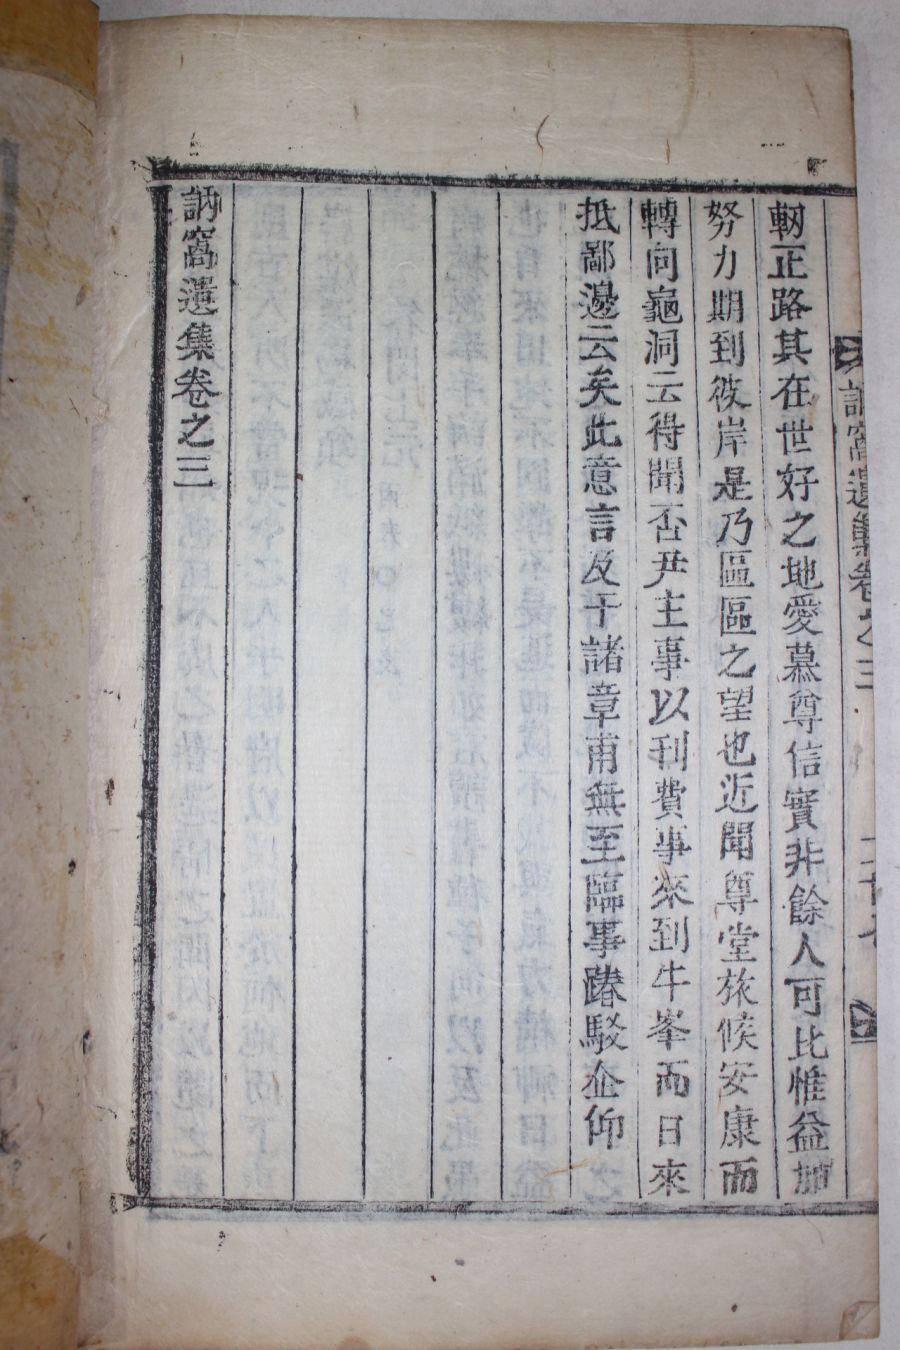 訥窩遺集卷之三
軔正路其在世好之地愛慕尊信實非餘人可比惟益加
努力期到彼岸是乃區區之望也近聞尊堂旅候安康而
轉向龜洞云得聞否尹主事以刊費事來到牛峯而日來
抵鄙邊云矣此意言及于諸章甫無至臨事蹲駁企仰
訥窩遺集卷之三